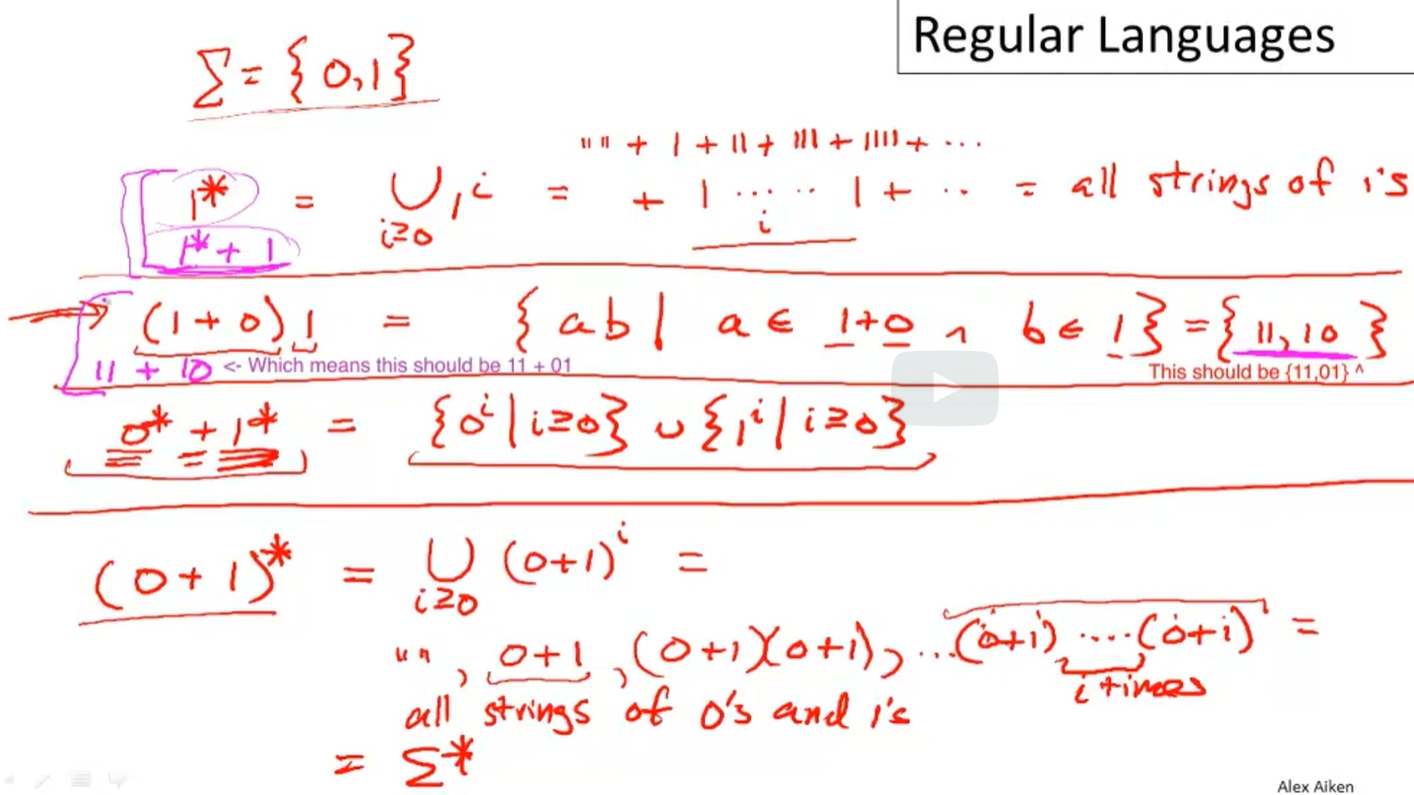 Regular Languages
Σ = {0,1}
"" + 1 + 11 + 111 + 1111 + ...
1* = ∪ 1^i = + 1 ..... 1 + .. = all strings of 1's
i≥0 i
1* + 1
(1 + 0) 1 = { ab | a ∈ 1+0 ∧ b ∈ 1 } = { 11, 10 }
11 + 10 <- Which means this should be 11 + 01
This should be {11,01} ^
0* + 1* = {0^i | i≥0} ∪ {1^i | i≥0}
=
(0 + 1)* = ∪ (0+1)^i =
i≥0
"", 0+1, (0+1)(0+1), ...(0+1) ....(0+1) =
i times
all strings of 0's and 1's
= Σ*
Alex Aiken